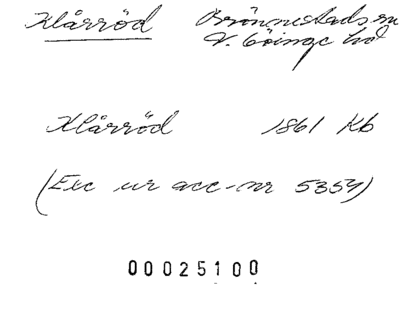 Klårröd Brönnestads sn
V. Göinge hd
Klårröd 1861 Kb
(Exc ur acc-nr 5354)
00025100